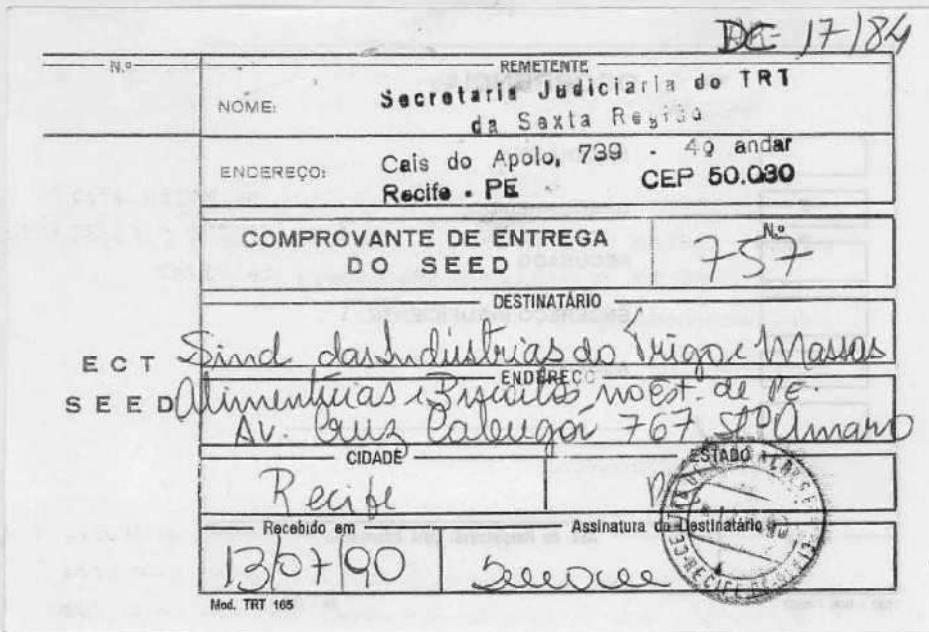 DC 17/84
N.º
REMETENTE
NOME: Secretaria Judiciaria do TRT
da Sexta Região
ENDEREÇO: Cais do Apolo, 739 - 4º andar
Recife - PE CEP 50.030
COMPROVANTE DE ENTREGA
DO SEED
N.º
757
DESTINATÁRIO
ECT
SEED
Sind. das Indústrias do Trigo e Massas
ENDEREÇO
Alimentícias e Biscoitos no Est. de PE.
Av. Cruz Cabugá 767 Stº Amaro
CIDADE
Recife
ESTADO
Recebido em
13/07/90
Assinatura do Destinatário
Mod. TRT 165